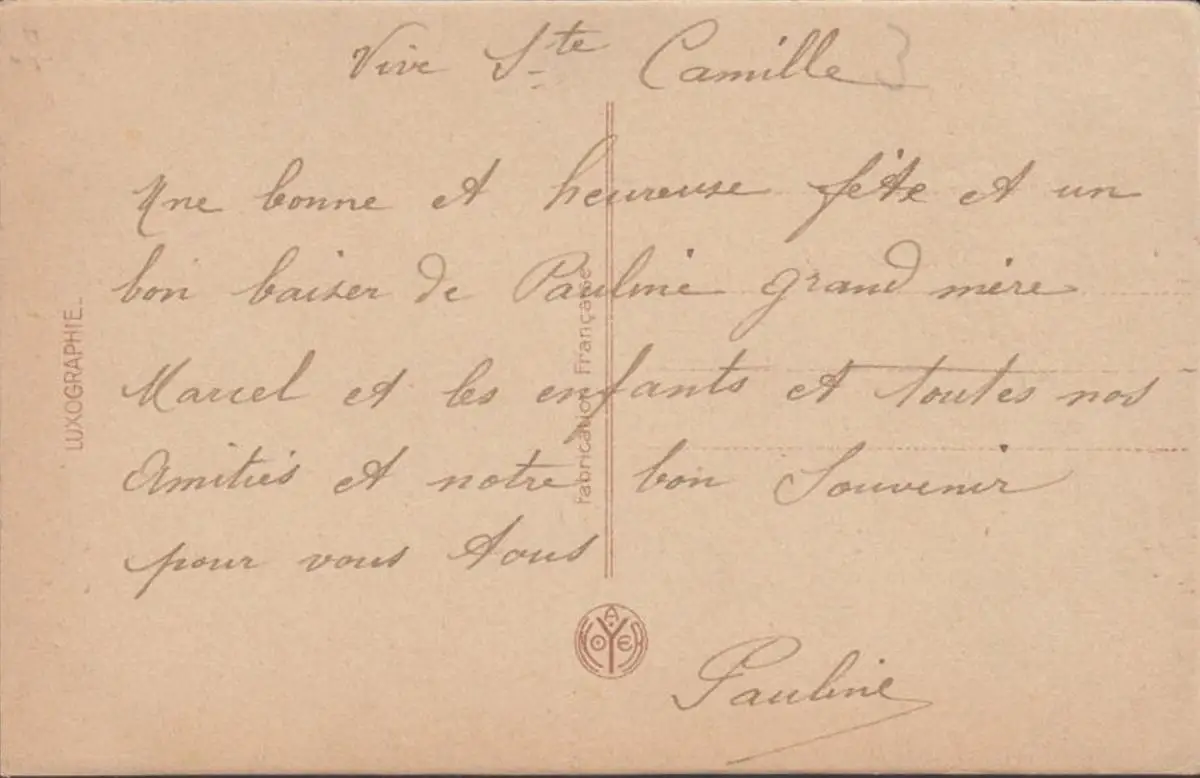 Vive Ste Camille
3
Une bonne et heureuse fête et un
bon baiser de Pauline grand mère
Marcel et les enfants et toutes nos
Amitiés et notre bon Souvenir
pour vous tous
Pauline
LUXOGRAPHIE_
Fabrication Française